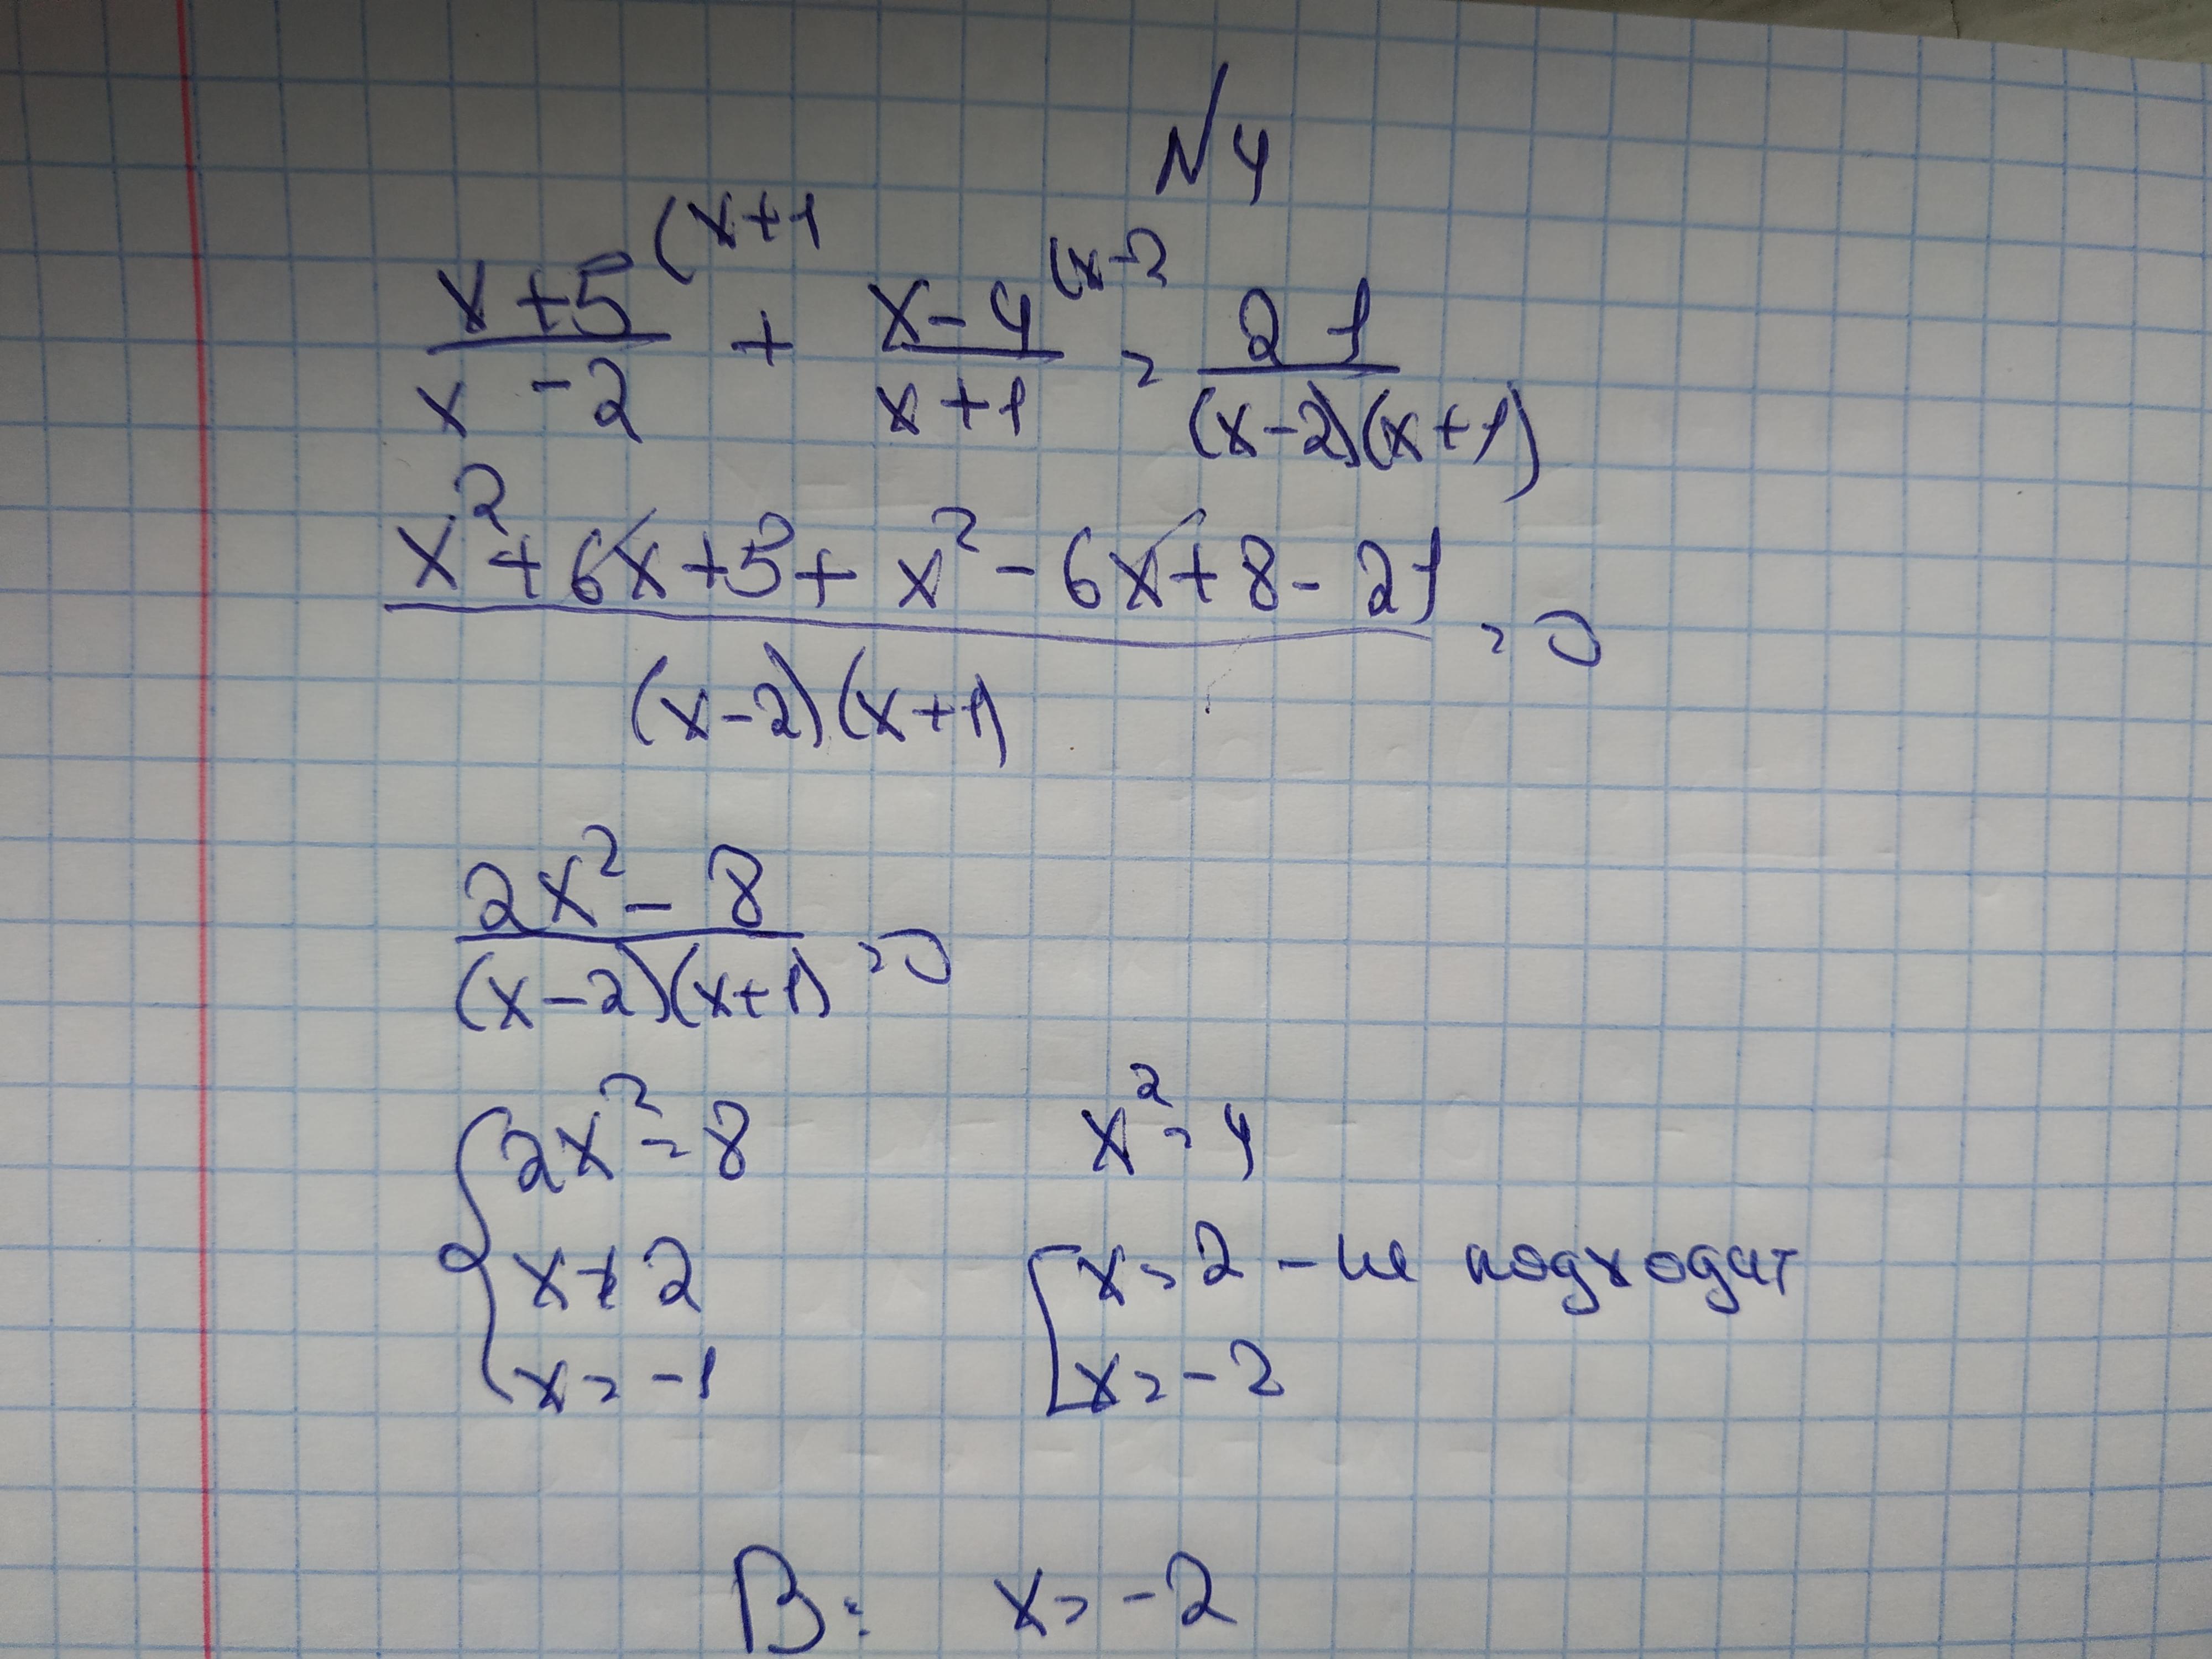 №4
(x+5)/(x-2) (x+1 + (x-4)/(x+1) (x-2 = 21/((x-2)(x+1))
(x²+6x+5+x²-6x+8-21)/((x-2)(x+1)) = 0
(2x²-8)/((x-2)(x+1)) = 0
{ 2x²=8 x²=4
x≠2 [ x=2 - не подходит
x=-1 x=-2
В: x=-2